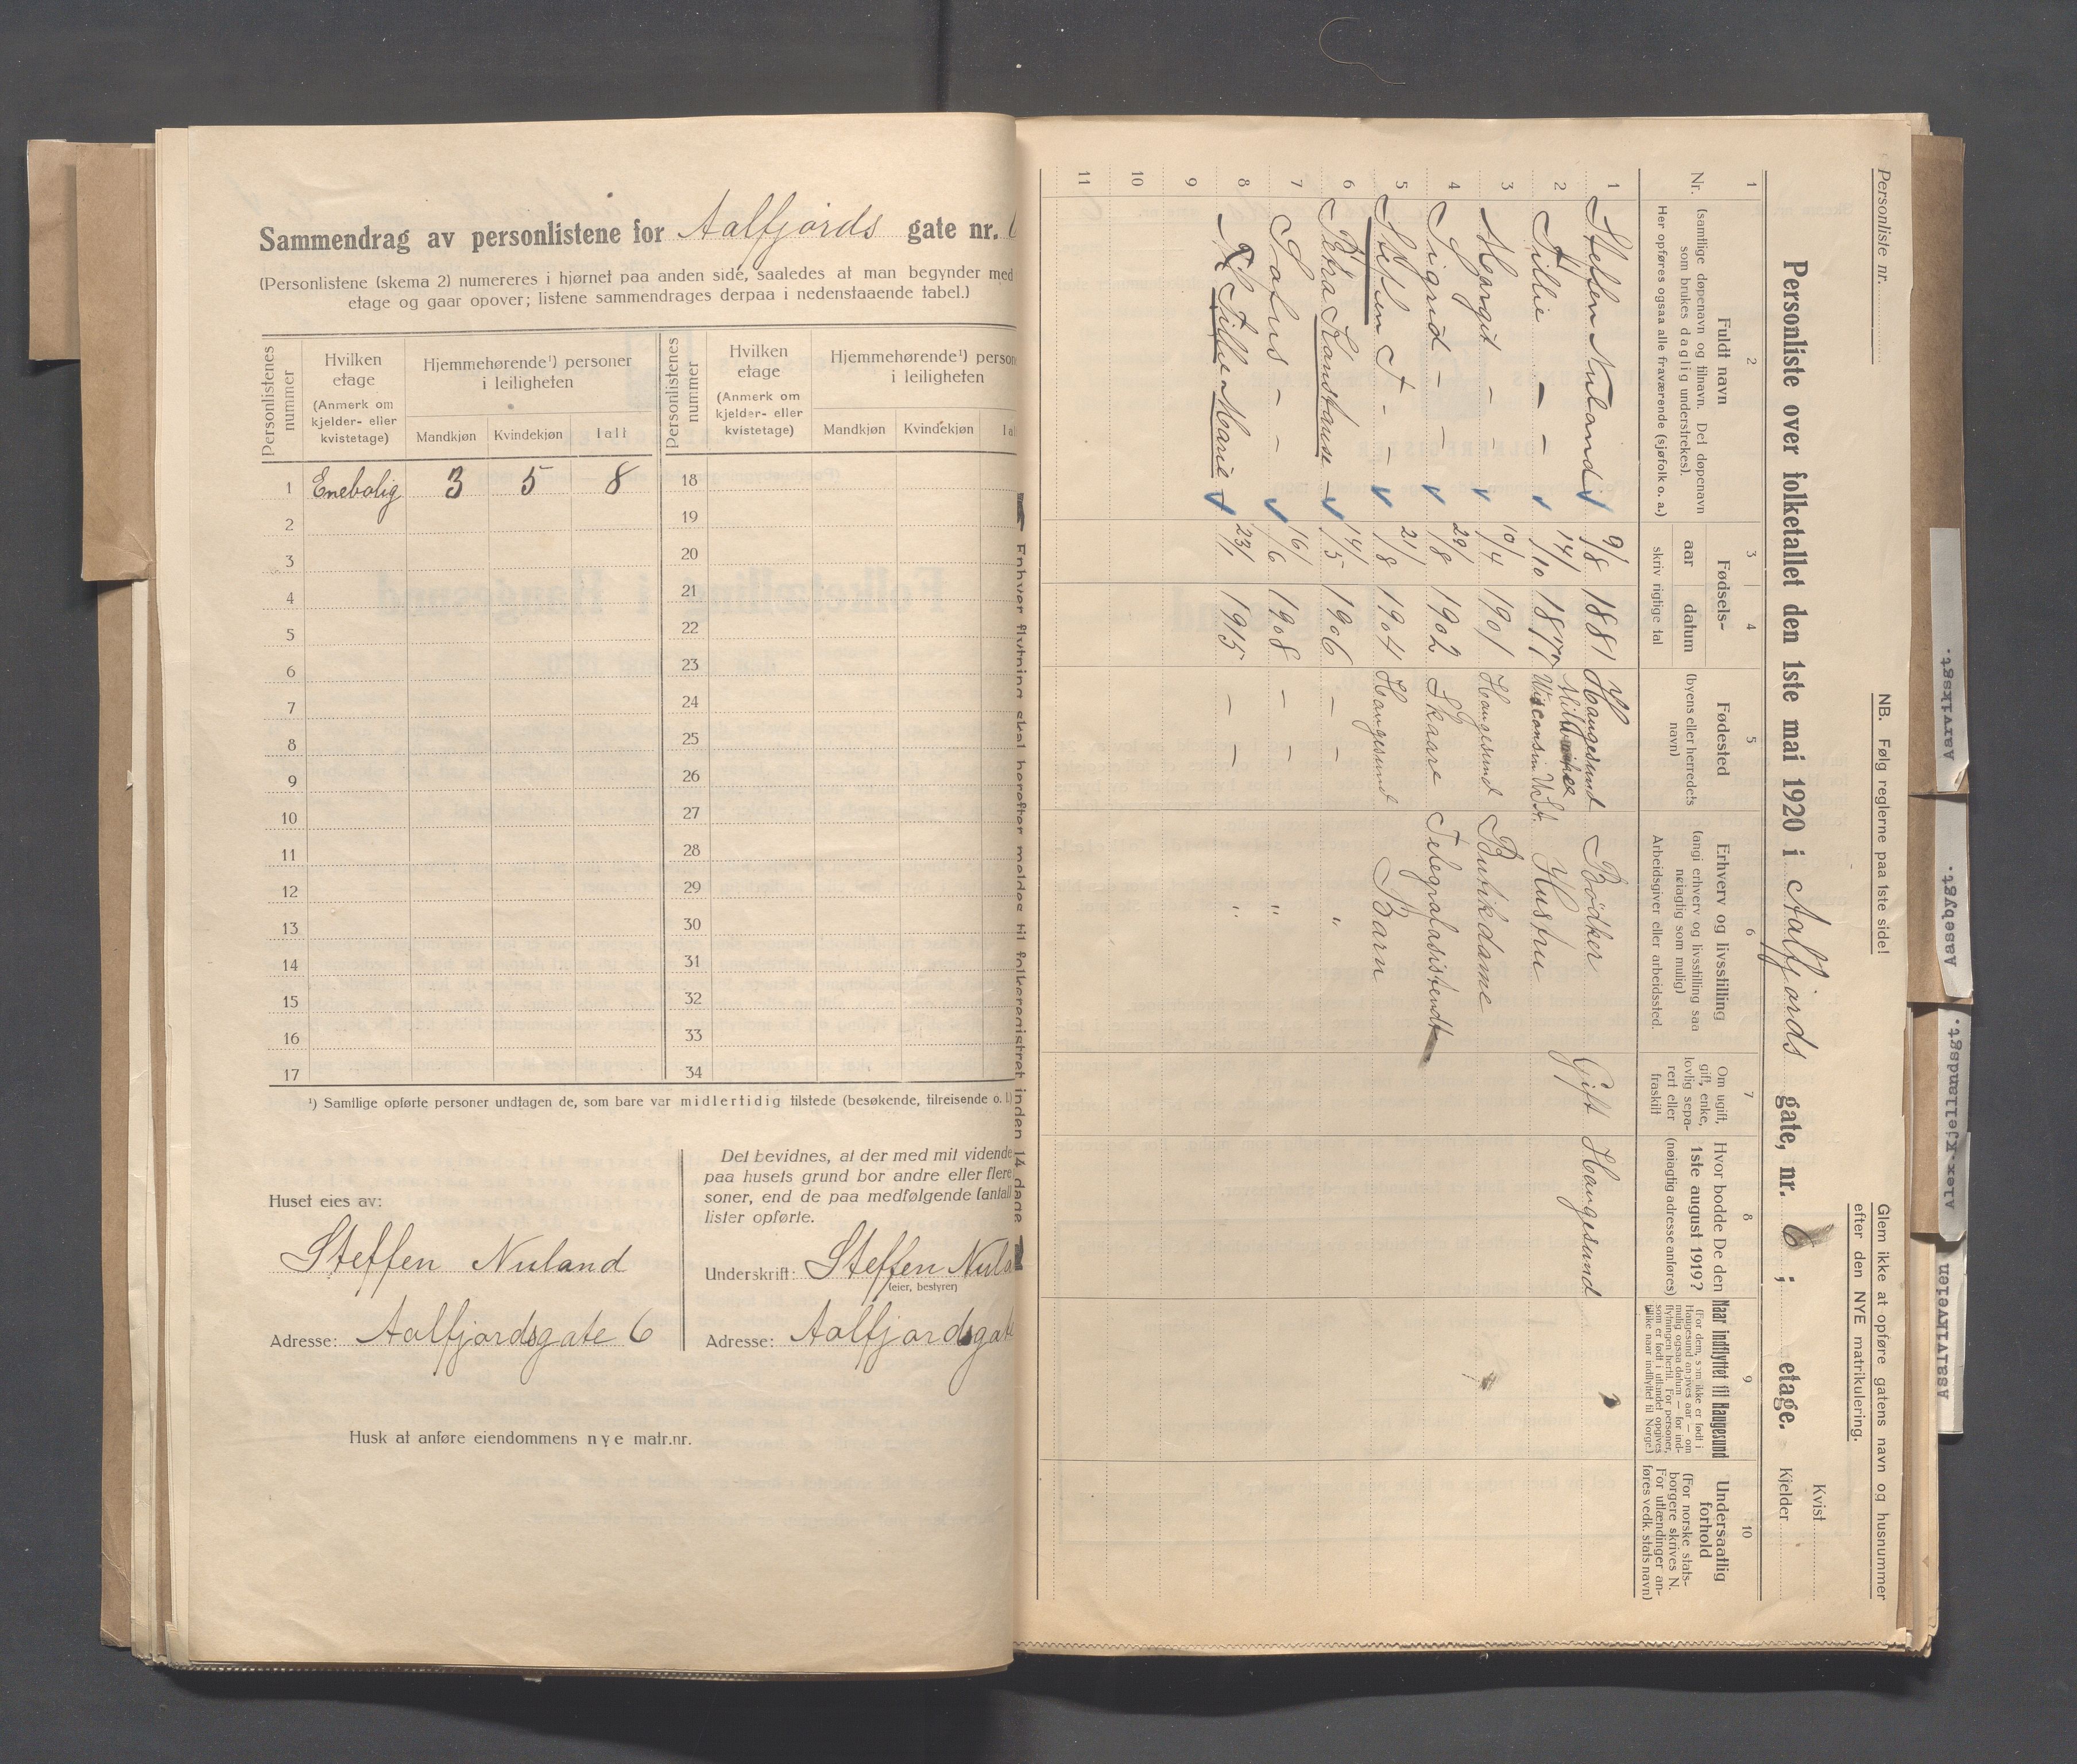 Sammendrag av personlistene for Aalfjords gate nr. 6
(Personlistene (skema 2) numereres i hjørnet paa anden side, saaledes at man begynder med
etage og gaar opover; listene sammendrages derpaa i nedenstaaende tabel.)
Personlistenes nummer
Hvilken etage
(Anmerk om kjelder- eller kvistetage)
Hjemmehørende¹) personer i leiligheten
Mandkjøn Kvindekjøn Ialt
Personlistenes nummer
Hvilken etage
(Anmerk om kjelder- eller kvistetage)
Hjemmehørende¹) person
i leiligheten
Mandkjøn Kvindekjøn Ial
1 Enebolig 3 5 8 18
2 19
3 20
4 21
5 22
6 23
7 24
8 25
9 26
10 27
11 28
12 29
13 30
14 31
15 32
16 33
17 34
¹) Samtlige opførte personer undtagen de, som bare var midlertidig tilstede (besøkende, tilreisende o. l.)
Huset eies av:
Steffen Nuland
Adresse: Aalfjordsgate 6
Det bevidnes, at der med mit vidende
paa husets grund bor andre eller flere
soner, end de paa medfølgende (antall
lister opførte.
Underskrift: Steffen Nula
(eier, bestyrer)
Adresse: Aalfjordsgate
Husk at anføre eiendommens nye matr.nr.
Enhver flytning skal herefter meldes til folkeregistret inden 14 dage
Personliste nr.
NB. Følg reglerne paa 1ste side!
Glem ikke at opføre gatens navn og husnummer
efter den NYE matrikulering.
Personliste over folketallet den 1ste mai 1920 i Aalfjords gate, nr. 6 ; etage.
Kvist
Kjelder
1 2 3 4 5 6 7 8 9 10
Nr.
Fuldt navn
(samtlige døpenavn og tilnavn. Det døpenavn
som brukes daglig understrekes).
Her opføres ogsaa alle fraværende (sjøfolk o. a.)
Fødsels-
aar datum
skriv rigtige tal
Fødested
(byens eller herredets
navn)
Erhverv og livsstilling
(angi erhverv og livsstilling saa
nøiagtig som mulig)
Arbeidsgiver eller arbeidssted.
Om ugift,
gift, enke,
lovlig sepa-
rert eller
fraskilt
Hvor bodde De den
1ste august 1919?
(nøiagtig adresse anføres)
Naar indflyttet til Haugesund
(For dem, som ikke er født i
Haugesund angives aar — om
mulig ogsaa datum — for ind-
flytningen hertil. For personer,
som er født i utlandet opgives
tillike naar indflyttet til Norge.)
Undersaatlig
forhold
(For norske stats-
borgere skrives N.
For utlændinger an-
føres vedk. stats navn)
1 Steffen Nuland 9/8 1881 Haugesund Bödker Gift Haugesund
2 Tillie — — 14/10 1877 Milwaukee Wisconsin U.S.A. Hustru
3 Margit — — 10/4 1901 Haugesund Butikdame
4 Sigrid — — 29/8 1902 Skaare Telegrafassistendt
5 Stephen A — — 21/8 1904 Haugesund Barn
6 Petra Konstanse — 14/5 1906 — — "
7 Sofus — — 16/6 1908 — — "
8 Tillie Marie 23/1 1915 — — "
9
10
11
Aarviksgt.
Aasebygt.
Alex.Kjellandsgt.
Asalvikveien